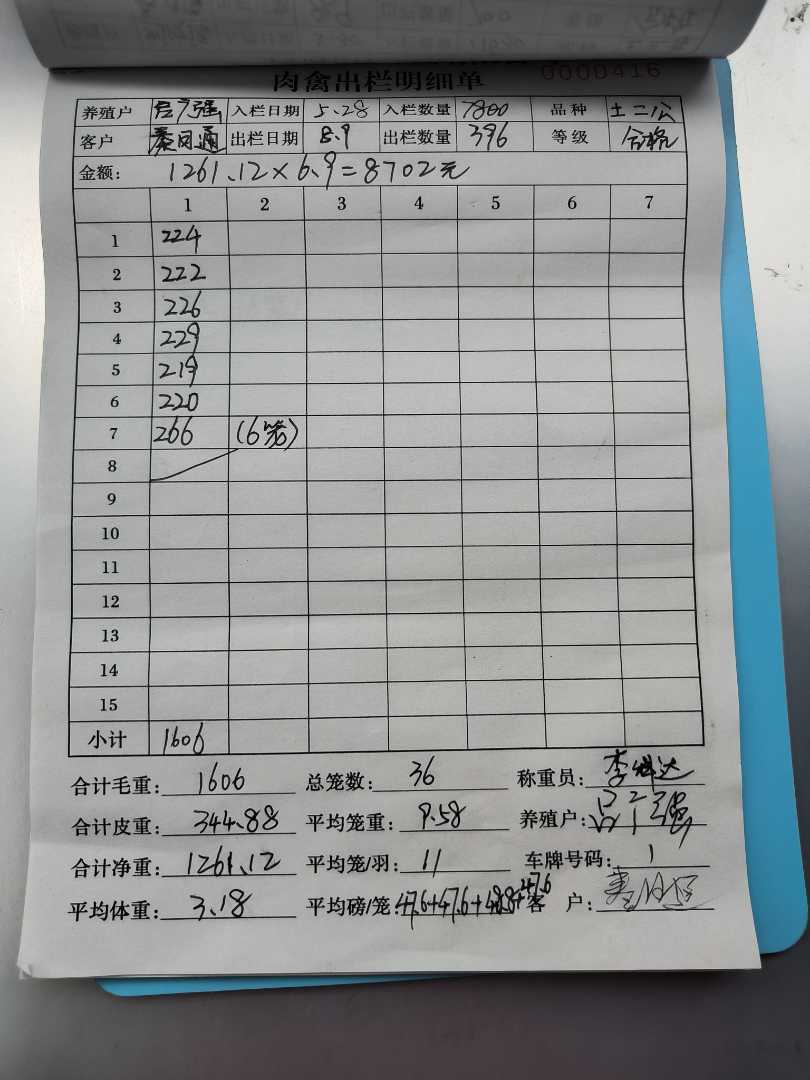 肉禽出栏明细单 0000416
养殖户 入栏日期 5.28 入栏数量 7800 品种 土二公
客户 秦日通 出栏日期 8.9 出栏数量 396 等级 合格
金额: 1261.12×6.9=8702元
1 2 3 4 5 6 7
1 224
2 222
3 226
4 229
5 219
6 220
7 266 (6笼)
8
9
10
11
12
13
14
15
小计 1606
合计毛重: 1606 总笼数: 36 称重员: 李 达
合计皮重: 344.88 平均笼重: 9.58 养殖户: 强
合计净重: 1261.12 平均笼/羽: 11 车牌号码: 1
平均体重: 3.18 平均磅/笼: 47.6+47.6+48.8+47.6 客 户: